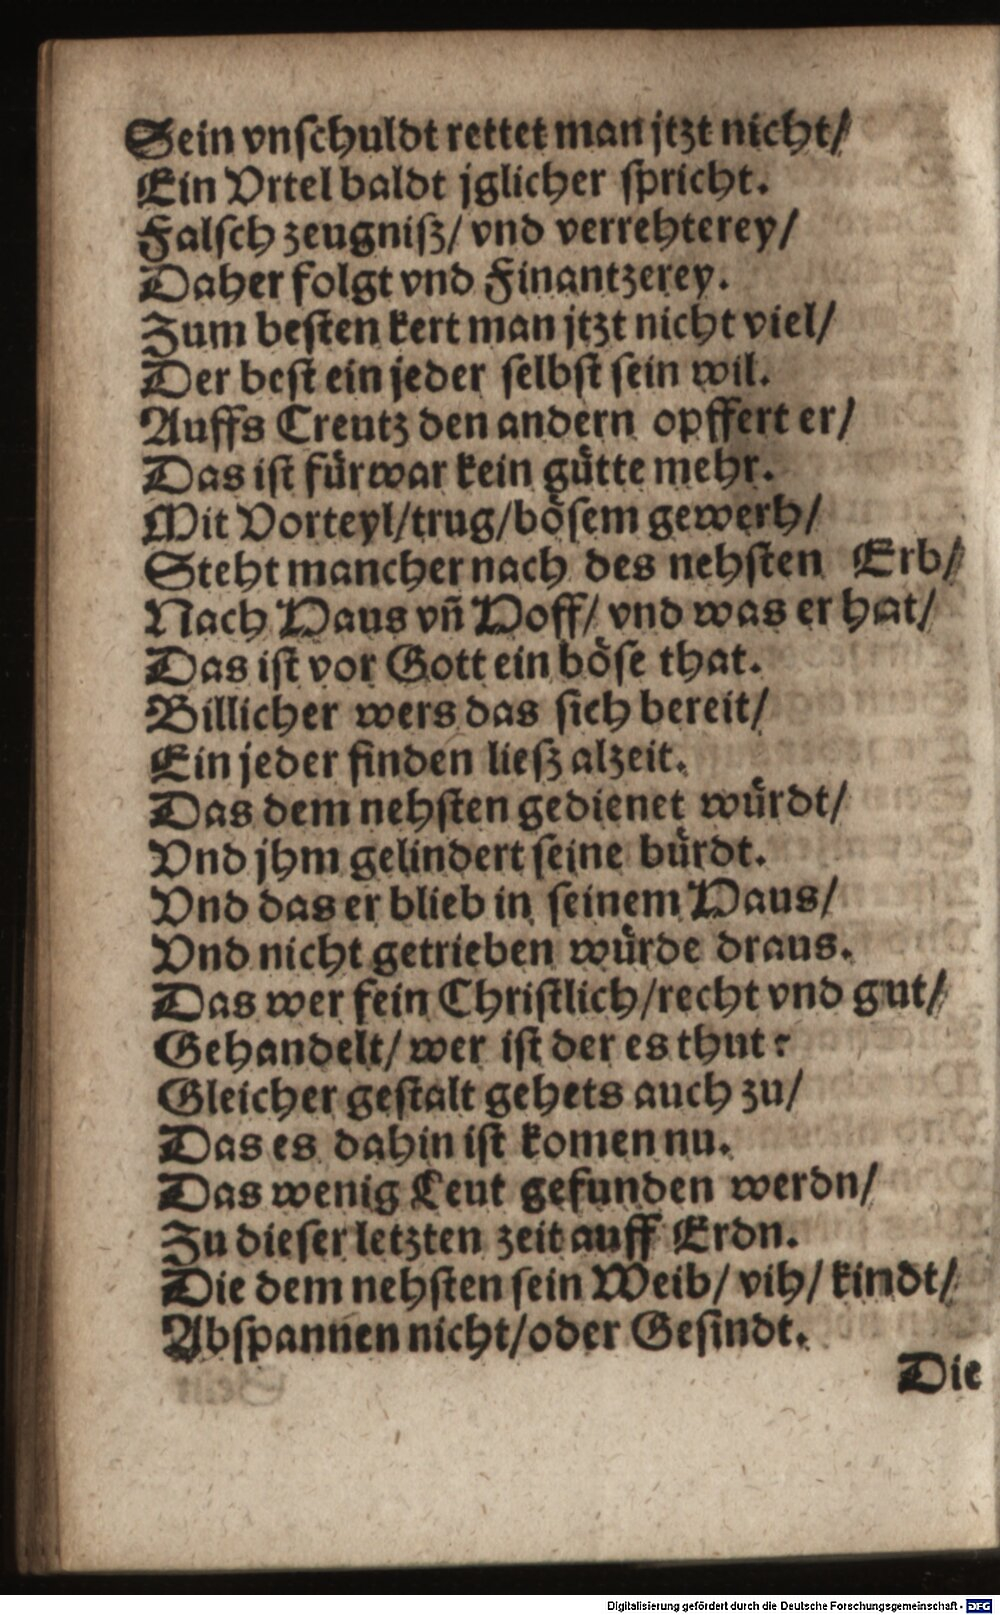 Sein vnſchuldt rettet man jtzt nicht/
Ein Vrtel baldt jglicher ſpricht.
Falſch zeugniſz/ vnd verrehterey/
Daher folgt vnd Finantzerey.
Zum beſten kert man jtzt nicht viel/
Der beſt ein jeder ſelbſt ſein wil.
Auffs Creutz den andern opffert er/
Das iſt fuͤrwar kein guͤtte mehr.
Mit Vorteyl/trug/boͤſem gewerb/
Steht mancher nach des nehſten Erb/
Nach Haus vn̄ Hoff/ vnd was er hat/
Das iſt vor Gott ein boͤſe that.
Billicher wers das ſich bereit/
Ein jeder finden lieſz alzeit.
Das dem nehſten gedienet wuͤrdt/
Vnd jhm gelindert ſeine buͤrdt.
Vnd das er blieb in ſeinem Haus/
Vnd nicht getrieben wuͤrde draus.
Das wer fein Chriſtlich/recht vnd gut/
Gehandelt/ wer iſt der es thut?
Gleicher geſtalt gehets auch zu/
Das es dahin iſt komen nu.
Das wenig Leut gefunden werdn/
Zu dieſer letzten zeit auff Erdn.
Die dem nehſten ſein Weib/ vih/ kindt/
Abſpannen nicht/oder Geſindt.
Die
Digitalisierung gefördert durch die Deutsche Forschungsgemeinschaft - DFG